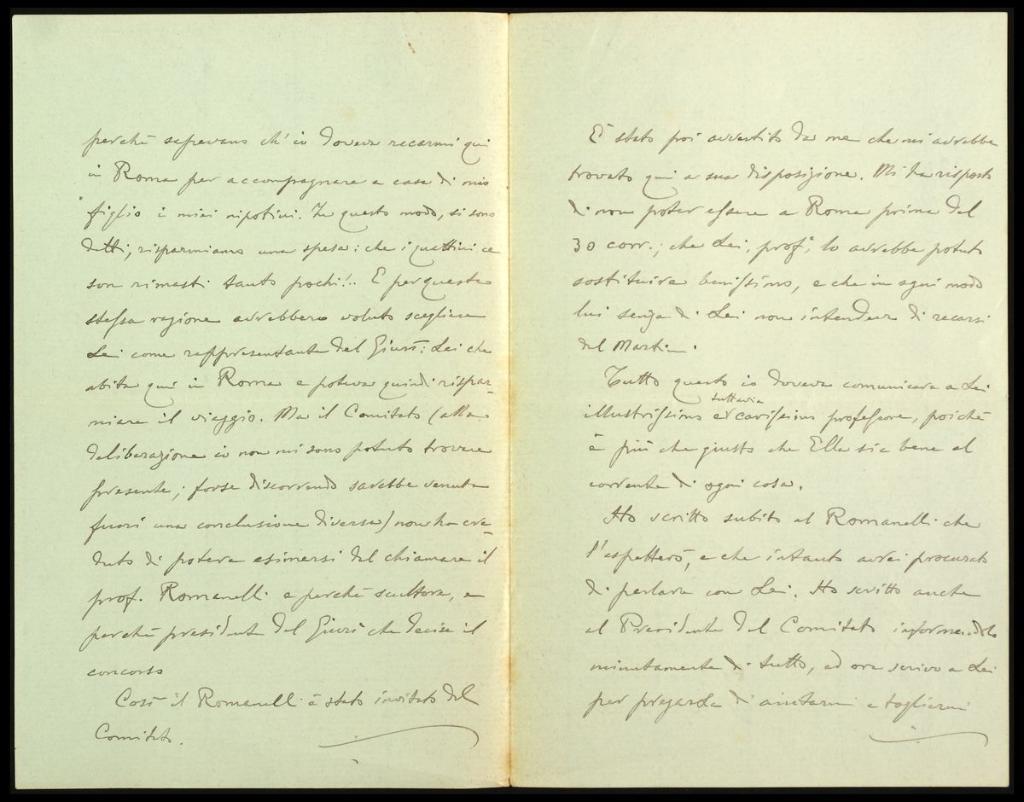 perchè sapevano ch'io doveva recarmi qui
in Roma per accompagnare a casa di mio
figlio i miei nipotini. In questo modo, si sono
detti, risparmiamo una spesa: che i quattrini ce
son rimasti tanto pochi!.. E per questa
stessa ragione avrebbero voluto scegliere
Lei come rappresentante del Giurì: Lei che
abita qui in Roma e poteva quindi rispar-
miare il viaggio. Ma il Comitato (alla
deliberazione io non mi sono potuto trovare
presente; forse discorrendo sarebbe venuta
fuori una conclusione diversa) non ha cre-
duto di potere esimersi dal chiamare il
prof. Romanelli e perchè scultore, e
perchè presidente del Giurì che decise il
concorso
Così il Romanelli è stato invitato dal
Comitato.
È stato poi avvertito da me che mi avrebbe
trovato qui a sua disposizione. Mi ha risposto
di non poter essere a Roma prima del
30 corr.; che Lei, prof., lo avrebbe potuto
sostituire benissimo, e che in ogni modo
lui senza di Lei non intendeva di recarsi
dal Martin.
Tutto questo io doveva comunicare a Lei
illustrissimo e tuttavia carissimo professore, poichè
è più che giusto che Ella sia bene al
corrente di ogni cosa.
Ho scritto subito al Romanelli che
l'aspetterò, e che intanto avrei procurato
di parlare con Lei. Ho scritto anche
al Presidente del Comitato informandolo
minutamente di tutto, ed ora scrivo a Lei
per pregarla di aiutarmi e togliermi